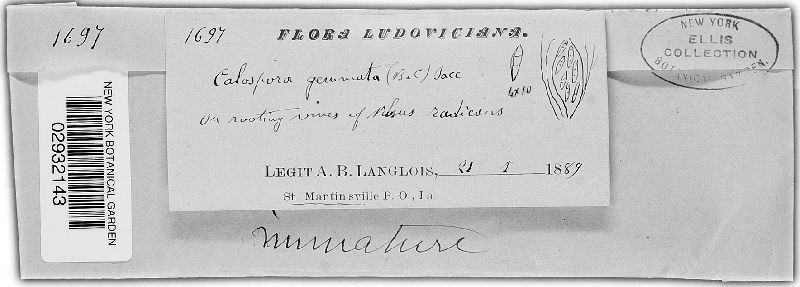 1697
1697 FLORA LUDOVICIANA.
Calospora gemmata (B&C) Sacc
on rooting vines of Rhus radicans
4x10
LEGIT A. B. LANGLOIS, 21 I 1889
St Martinsville P. O., La.
Immature
NEW YORK
ELLIS
COLLECTION
BOTANICAL GARDEN.
NEW YORK BOTANICAL GARDEN
02932143